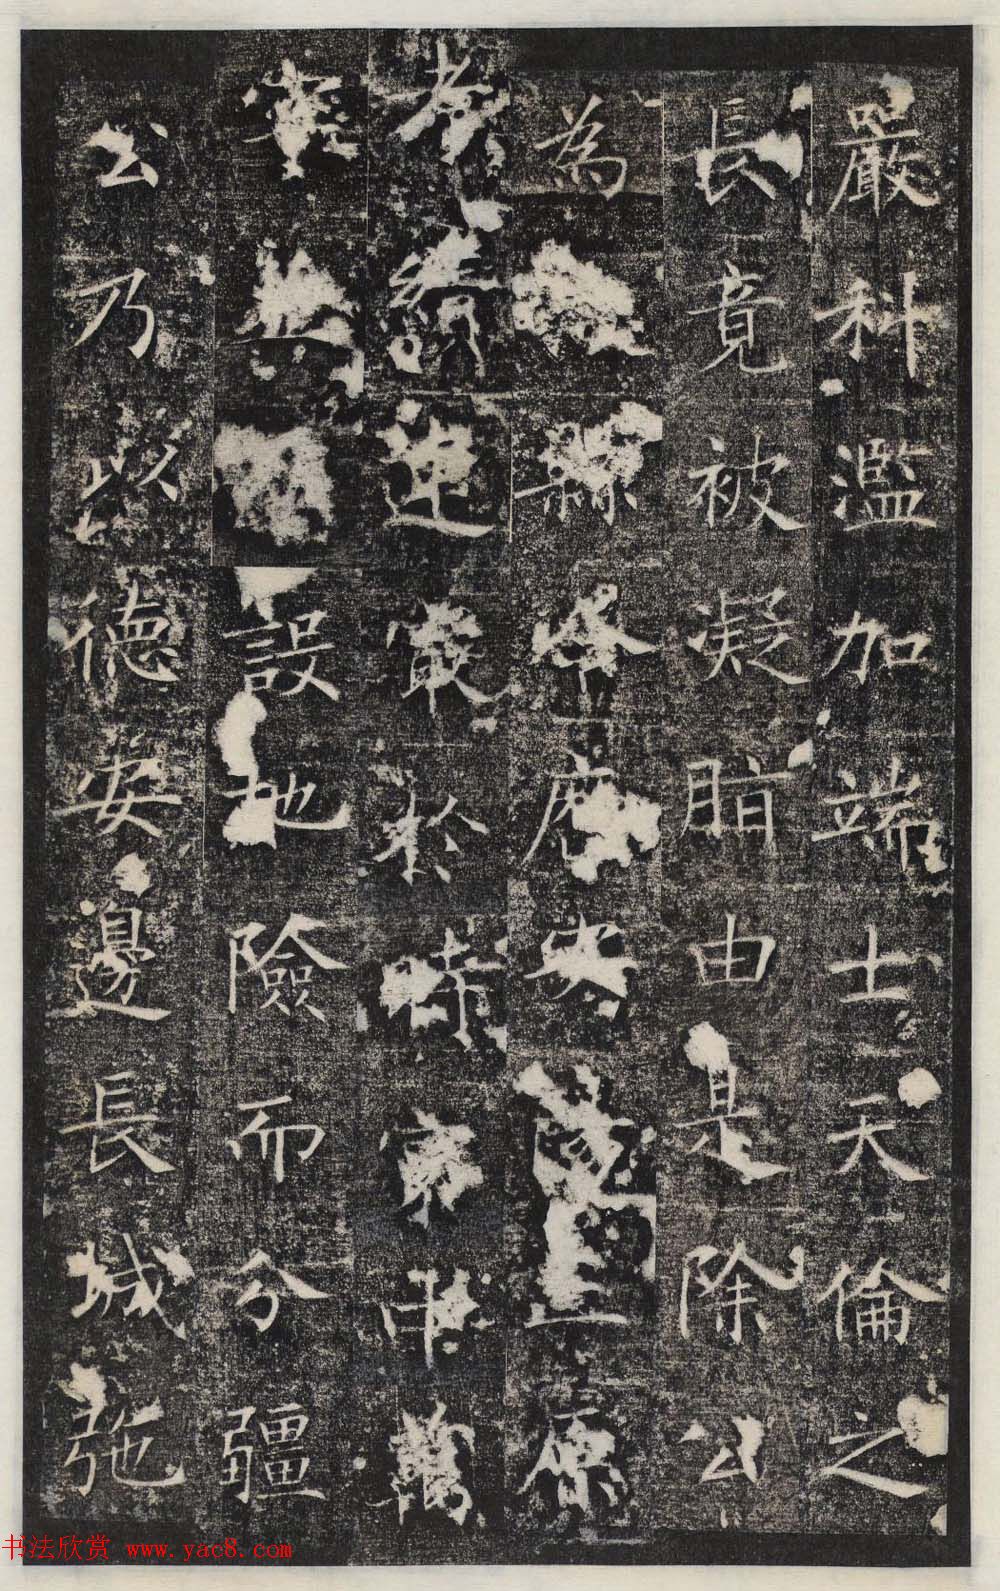 嚴科濫加端士天倫之
長竟被凝脂由是除公
為縣原
考績連最於時
設地險而分疆
公乃以德安邊長城弛
书法欣赏 www.yac8.com